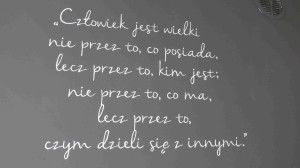 „Człowiek jest wielki
nie przez to, co posiada,
lecz przez to, kim jest;
nie przez to, co ma,
lecz przez to,
czym dzieli się z innymi.”